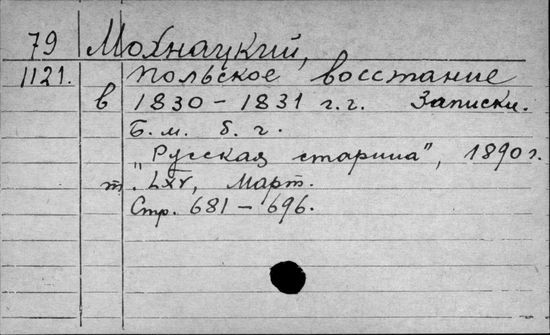 79 Мохнацкий,
1121. Польское восстание
в 1830-1831 г.г. Записки.
Б.м. б.г.
„Русская старина", 1890 г.
т. LXV, Март.
Стр. 681-696.